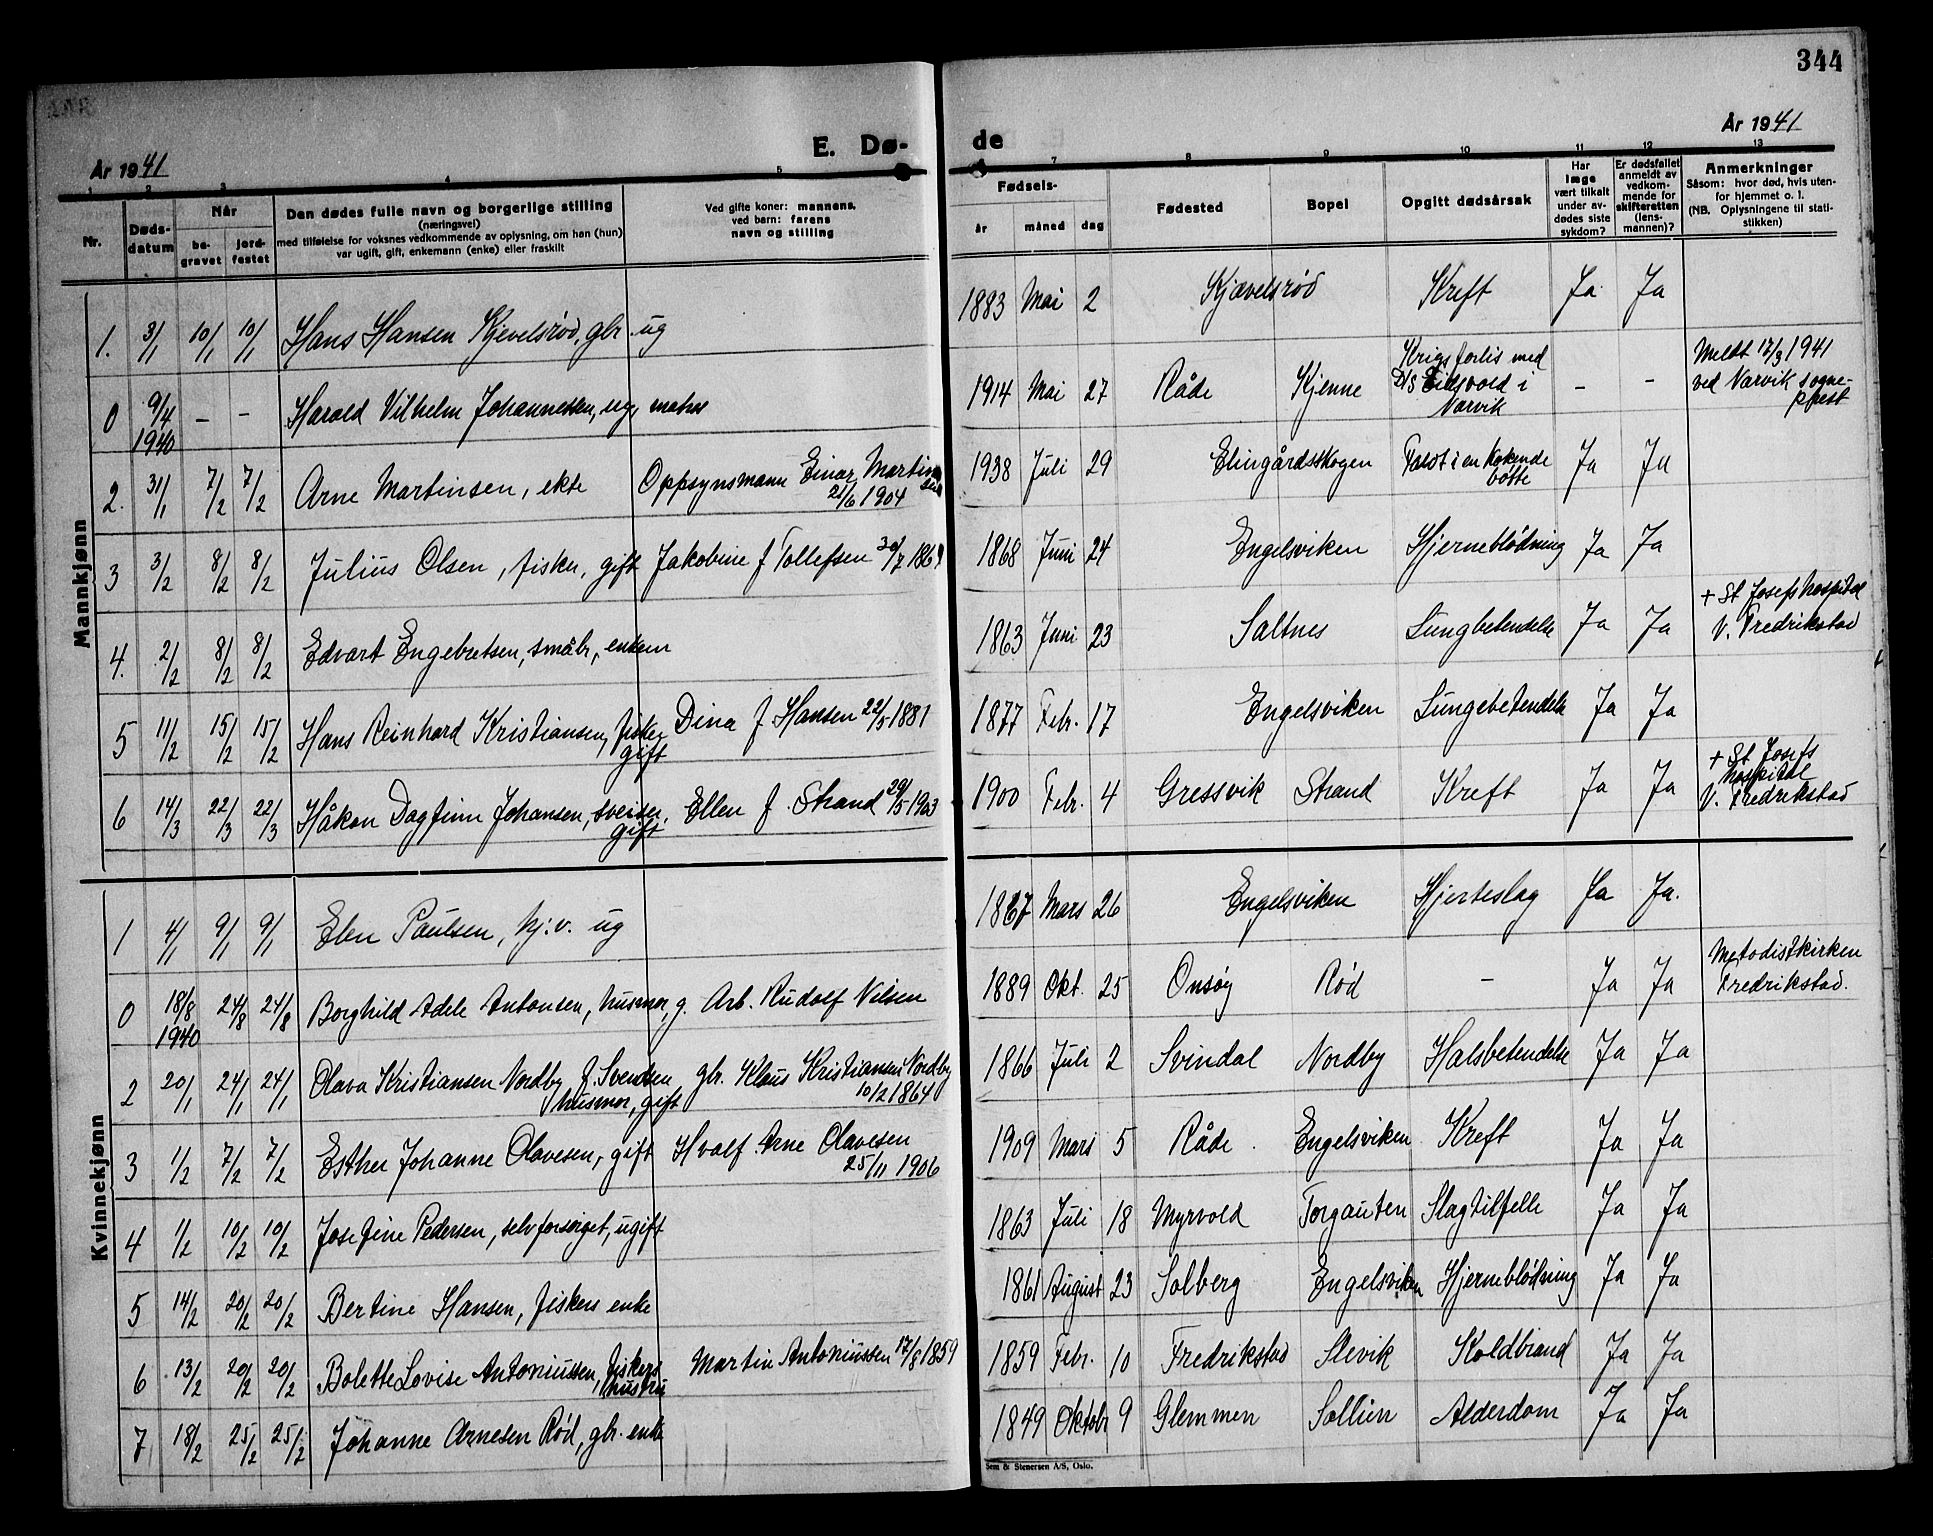 344
År 1941
E. Dø-
de
År 1941
1 2 3 4 5 7 8 9 10 11 12 13
Nr.
Døds-
datum
Når
be-
gravet
jord-
festet
Den dødes fulle navn og borgerlige stilling
(næringsvei)
med tilføielse for voksnes vedkommende av oplysning, om han (hun)
var ugift, gift, enkemann (enke) eller fraskilt
Ved gifte koner: mannens,
ved barn: farens
navn og stilling
Fødsels-
år måned dag
Fødested
Bopel
Opgitt dødsårsak
Har
læge
vært tilkalt
under av-
dødes siste
sykdom?
Er dødsfallet
anmeldt av
vedkom-
mende for
skifteretten
(lens-
mannen)?
Anmerkninger
Såsom: hvor død, hvis uten-
for hjemmet o. l.
(NB. Oplysningene til stati-
stikken)
Mannkjønn
1. 3/1 10/1 10/1 Hans Hansen Kjevelsrød, gbr. ug 1883 Mai 2 Kjævelsrød Kreft Ja Ja
0 9/4 1940 - - Harald Vilhelm Johannessen, ug, matros 1914 Mai 27 Råde Kjenne Krigsforlis med
D/S Eidsvold i
Narvik - - Meldt 12/3 1941
ved Narvik sogne-
prest
2. 31/1 7/2 7/2 Arne Martinsen, ekte Oppsynsmann Einar Martinsen
21/6 1904 1938 Juli 29 Elingårdsskogen Falot i en kokende
bøtte Ja Ja
3 3/2 8/2 8/2 Julius Olsen, fisker, gift Jakobine f Tollefsen 30/7 186 1868 Juni 24 Engelsviken Hjerneblödning Ja Ja
4. 2/2 8/2 8/2 Edvart Engebretsen, småbr, enkem 1863 Juni 23 Saltnes Lungbetendelse Ja Ja + St Josefs hospital
v. Fredrikstad
5 11/2 15/2 15/2 Hans Reinhard Kristiansen, fisker
gift Dina f Hansen 22/5 1881 1877 Febr. 17 Engelsviken Lungebetendelse Ja Ja
6 14/3 22/3 22/3 Håkon Dagfinn Johansen, sveiser,
gift Ellen f. Strand 29/5 1903 1900 Febr. 4 Gressvik Strand Kreft Ja Ja + St Josefs
hospital
v. Fredrikstad
Kvinnekjønn
1 4/1 9/1 9/1 Elen Paulsen, hj.v. ug 1867 Mars 26 Engelsviken Hjerteslag Ja Ja.
0 18/8 1940 24/8 24/8 Borghild Adele Antonsen, husmor, g. Arb. Rudolf Nilsen 1889 Okt. 25 Onsøy Rød - Ja Ja Metodistkirken
Fredrikstad.
2 20/1 24/1 24/1 Olava Kristiansen Nordby f. Svendsen
husmor, gift gbr. Klaus Kristiansen Nordby
10/2 1864 1866 Juli 2 Svindal Nordby Halsbetendelse Ja Ja
3 1/2 7/2 7/2 Esther Johanne Olavesen, gift Hvalf. Arne Olavesen
25/11 1906 1909 Mars 5 Råde Engelsviken Kreft Ja Ja
4 1/2 10/2 10/2 Josefine Pedersen, selvforsørget, ugift 1863 Juli 18 Myrvold Torgauten Slagtilfelle Ja Ja
5 14/2 20/2 20/2 Bertine Hansen, fiskers enke 1861 August 23 Solberg Engelsviken Hjerneblödning Ja Ja
6 13/2 20/2 20/2 Bolette Lovise Antoniussen, fiskers
hustru Martin Antoniussen 17/8 1859 1859 Febr. 10 Fredrikstad Slevik Koldbrand Ja Ja
7 18/2 25/2 25/2 Johanne Arnesen Rød, gbr. enke 1849 Oktobr 9 Glemmen Sollien Alderdom Ja Ja
Sem & Stenersen A/S, Oslo.